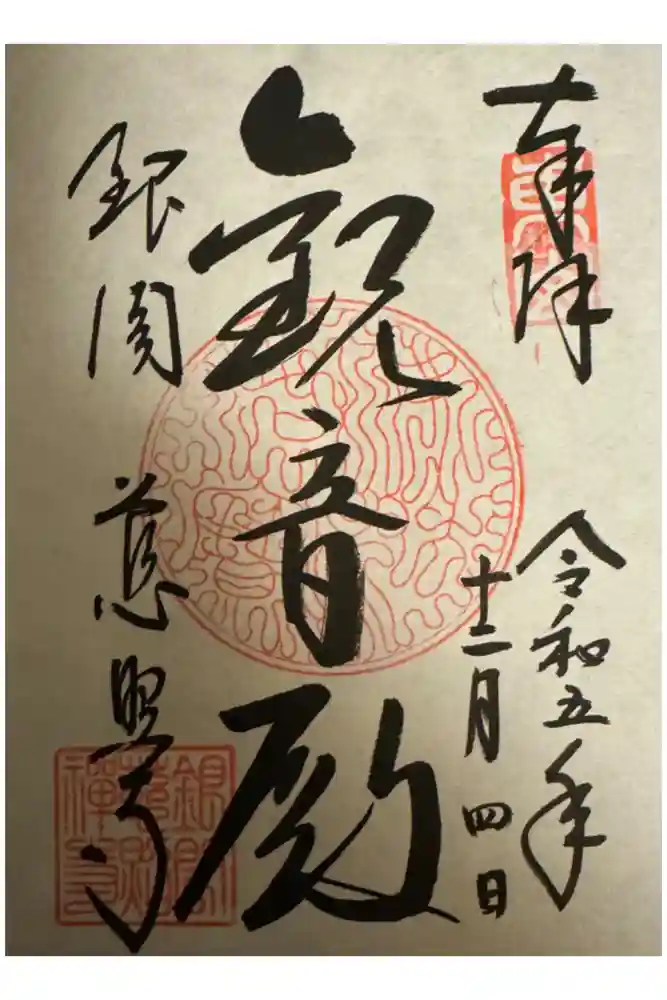 奉拝
令和五年
十二月四日
観音殿
銀閣
慈照寺
銀閣
慈照
禅寺